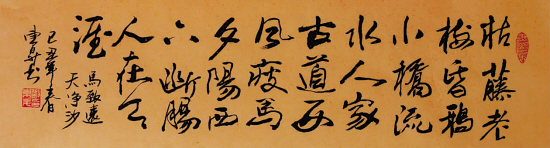 枯藤老
樹昏鴉
小橋流
水人家
古道西
風瘦馬
夕陽西
下斷腸
人在天
涯
馬致遠
天净沙
己丑年春
书